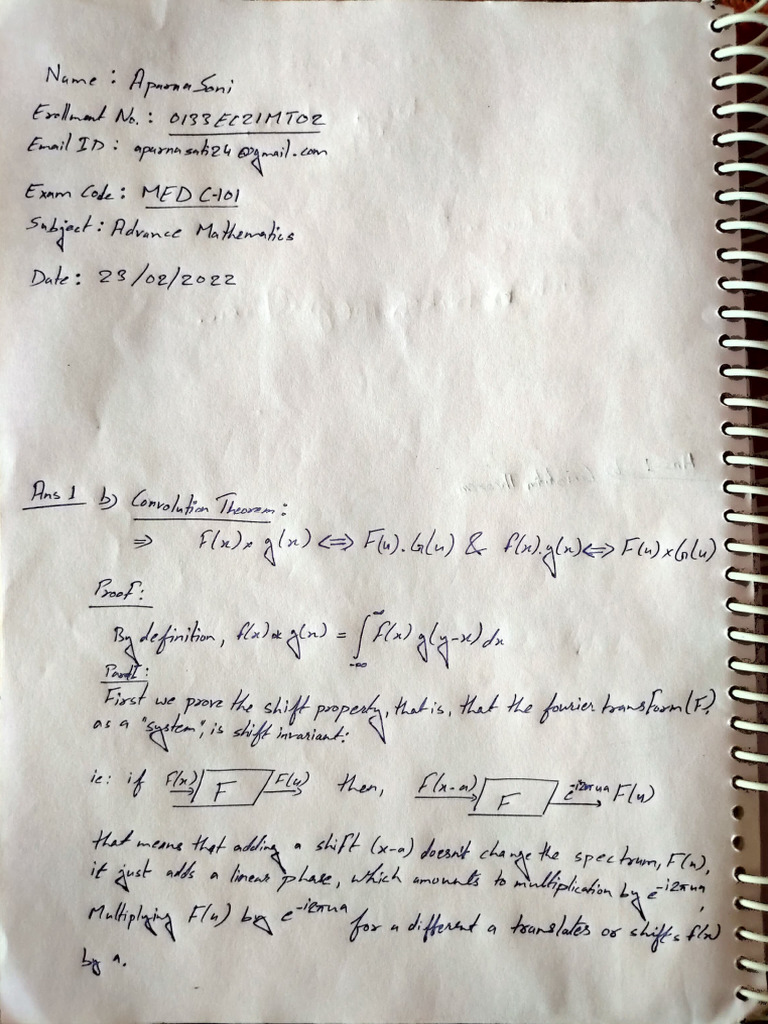 Name : Aparna Soni
Erollment No. : 0133EC21MT02
Email ID : aparnasati24@gmail.com
Exam Code : MEDC-101
Subject : Advance Mathematics
Date : 23/02/2022
Ans 1 b) Convolution Theorem :
⇒ f(x) * g(x) ⇔ F(u).G(u) & f(x).g(x) ⇔ F(u) * G(u)
Proof :
By definition, f(x) * g(x) = ∫_{-∞}^{∞} f(x) g(y-x) dx
Part I :
First we prove the shift property, that is, that the fourier transform (F)
as a "system", is shift invariant :
ie: if F(x) → F → F(u) then, F(x-a) → F → e^{-i2πua} F(u)
that means that adding a shift (x-a) doesn't change the spectrum, F(u),
it just adds a linear phase, which amounts to multiplication by e^{-i2πua},
Multiplying F(u) by e^{-i2πua} for a different a translates or shifts f(x)
by a.